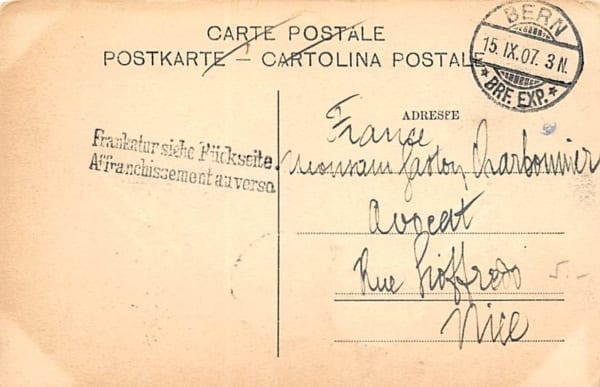 CARTE POSTALE
POSTKARTE — CARTOLINA POSTALE
BERN
15. IX. 07. 3 N.
* BRF. EXP. *
ADRESSE
Frankatur siehe Rückseite.
Affranchissement au verso
France
Monsieur Gaston Charbonnier
Avocat
Rue Gioffredo
Nice
5.-